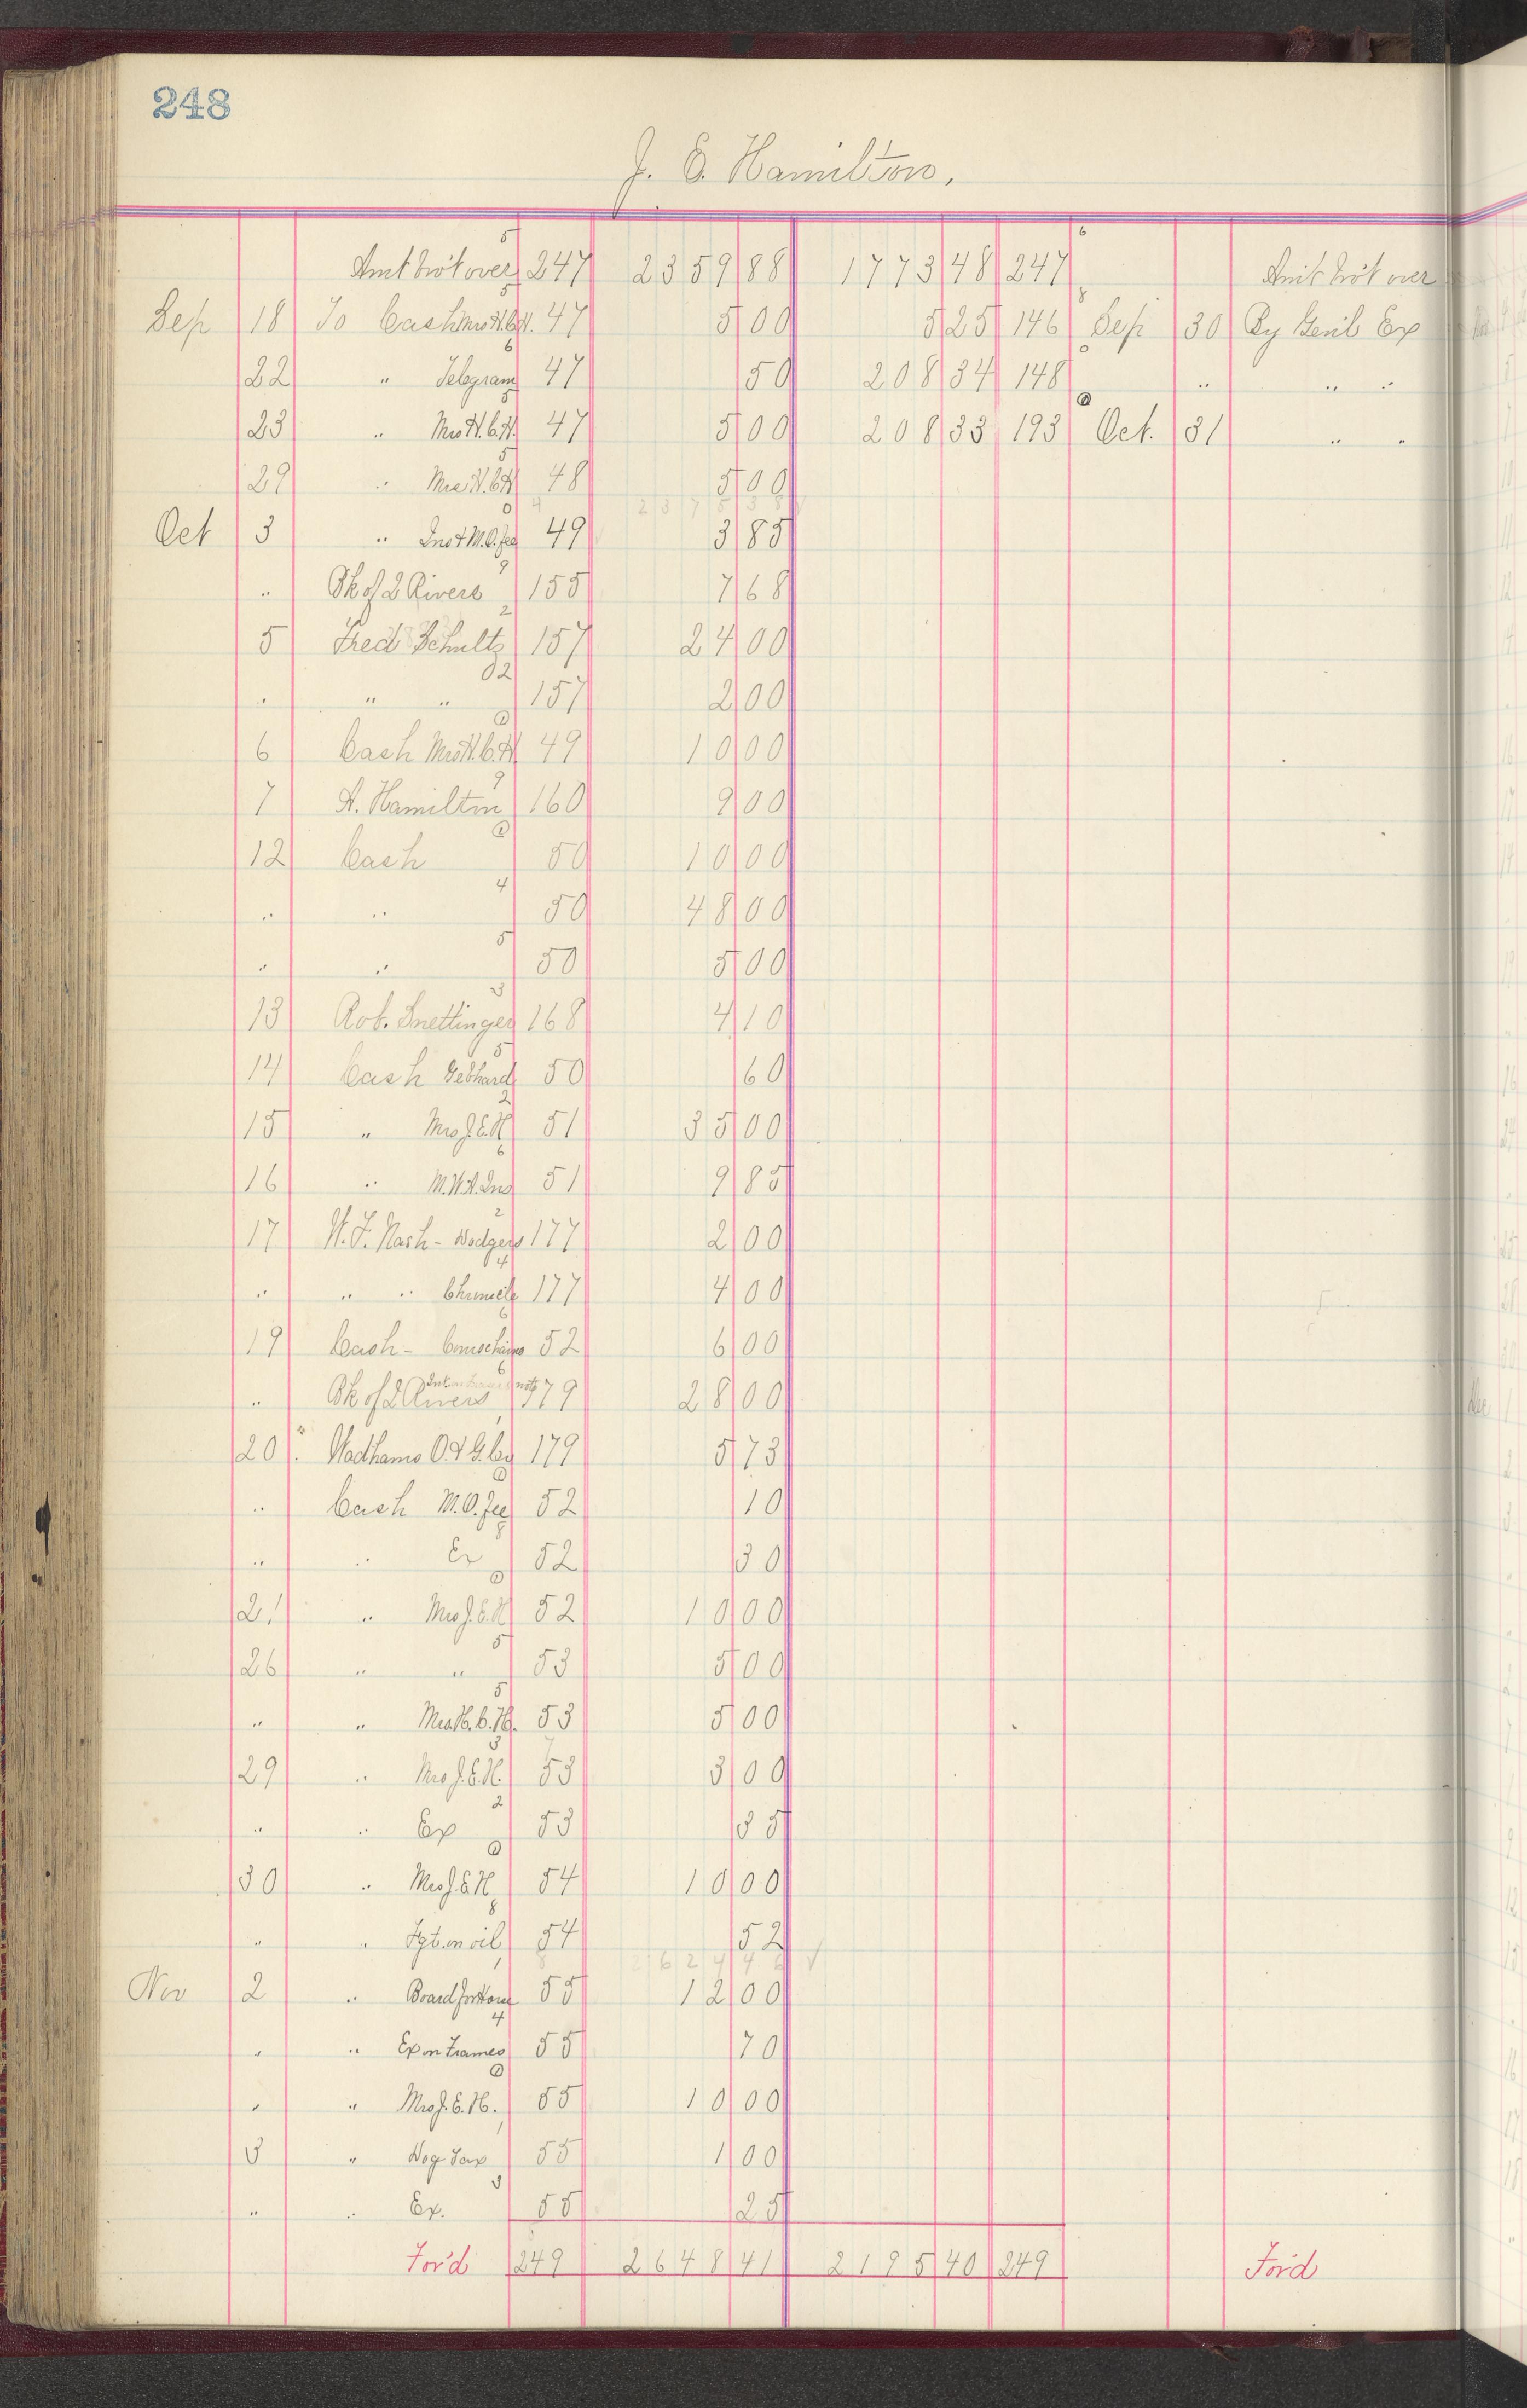 248
J. E. Hamilton.
Amt bro't over 5 247 2359 88 1773 48 247 6 Amt bro't over
Sep 18 To Cash Mrs H.C.H. 5 47 5 00 5 25 146 8 Sep 30 By Gen'l Ex
22 " Telegram 6 47 50 208 34 148 0 " " "
23 " Mrs H.C.H. 5 47 5 00 208 33 193 0 Oct. 31 " "
29 " Mrs H.C.H 5 48 5 00
4 2375 38 √
Oct 3 " Ins & M.O. fee 0 49 3 85
" Bk of 2 Rivers 9 155 7 68
5 Fred Schultz 2 157 24 00
" " " 02 157 2 00
6 Cash Mrs H.C.H 0 49 10 00
7 H. Hamilton 9 160 9 00
12 Cash 0 50 10 00
" " 4 50 48 00
" " 5 50 5 00
13 Rob. Snettinger 3 168 4 10
14 Cash Gebhard 5 50 60
15 " Mrs J.E.H 2 51 35 00
16 " M.W.A. Ins 6 51 9 85
17 W.F. Nash - Dodgers 2 177 2 00
" " " Chronicle 4 177 4 00
19 Cash - 6 52 6 00
" Bk of 2 Rivers Int. on note 6 179 28 00
20 Wadhams O. & G. Co 179 5 73
" Cash M.O. fee 0 52 10
" " Ex 8 52 30
21 " Mrs J.E.H 0 52 10 00
26 " " 5 53 5 00
" " Mrs H.C.H. 5 53 5 00
29 " Mrs J.E.H. 3 53 3 00
" " Ex 2 53 35
30 " Mrs J.E.H. 0 54 10 00
" " Fgt. on oil 8 54 52
8 2624 46 √
Nov 2 " Board for Horse 55 12 00
" " Ex on Frames 4 55 70
" " Mrs J.E.H. 0 55 10 00
3 " Dog Tax 55 1 00
" " Ex. 3 55 25
For'd 249 2648 41 2195 40 249 For'd